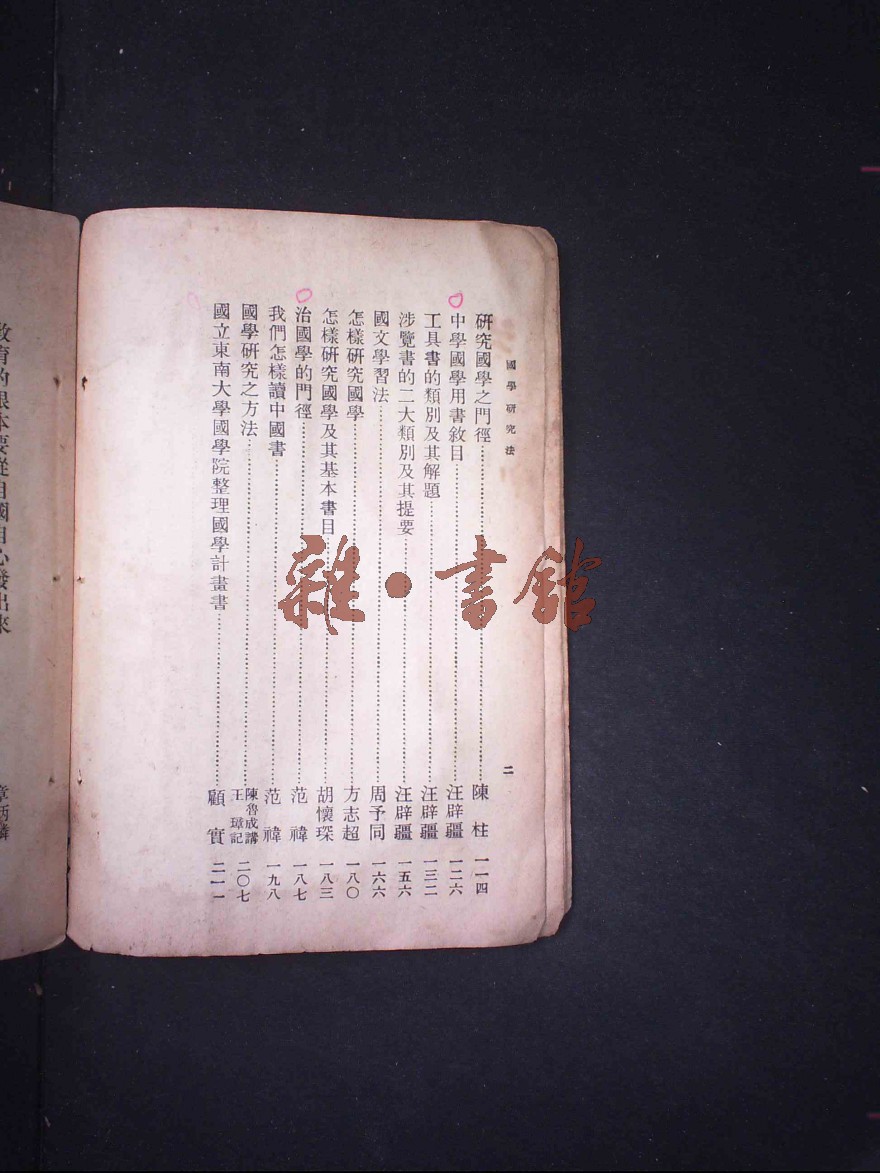 國學研究法
二
研究國學之門徑……陳柱 一一四
中學國學用書敘目……汪辟疆 一二六
工具書的類別及其解題……汪辟疆 一三二
涉覽書的二大類別及其提要……汪辟疆 一五六
國文學習法……周予同 一六六
怎樣研究國學……方志超 一八〇
怎樣研究國學及其基本書目……胡懷琛 一八三
治國學的門徑……范禕 一八七
我們怎樣讀中國書……范禕 一九八
國學研究之方法……陳魯成講 王璋記 二〇七
國立東南大學國學院整理國學計畫書……顧實 二一一
教育的根本要從自國自心發出來
章炳麟
雜·書館